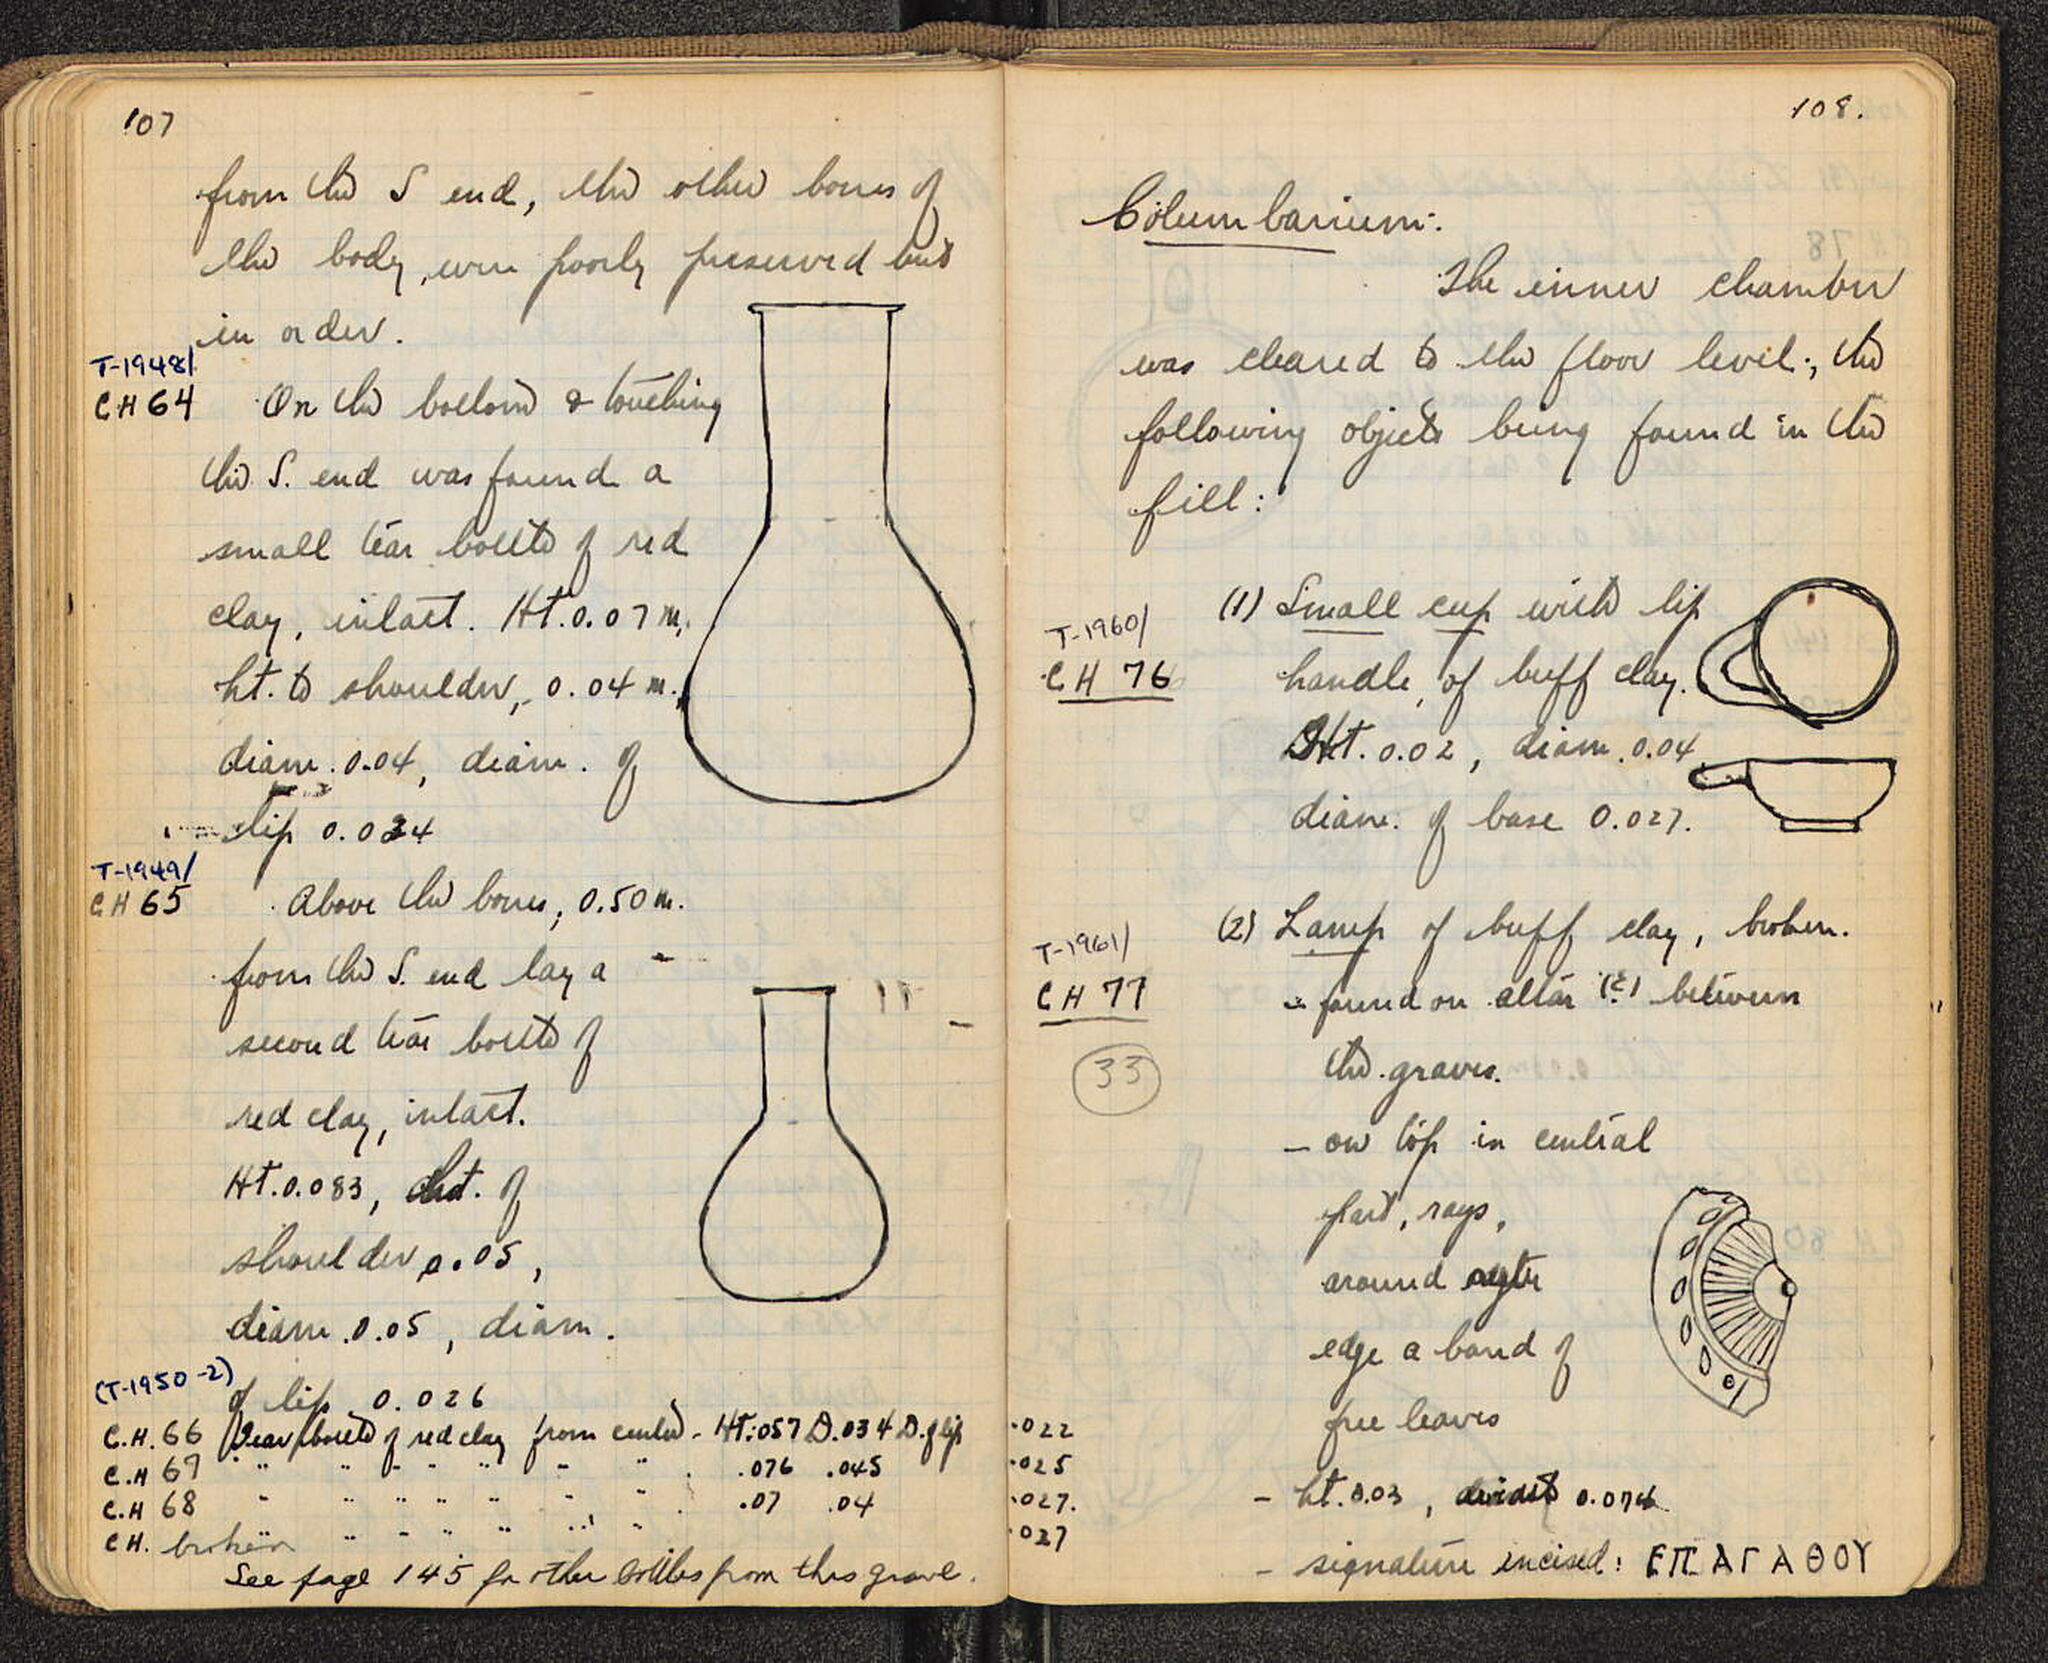 107
from the S end, the other bones of
the body, were poorly preserved but
in order.
T-1948/
CH 64 On the bottom & touching
the S. end was found a
small tear bottle of red
clay, intact. Ht. 0.07 m,
ht. to shoulder, 0.04 m.,
diam. 0.04, diam. of
lip 0.024
T-1949/
CH 65 Above the bones, 0.50 m.
from the S. end lay a
second tear bottle of
red clay, intact.
Ht. 0.083, ht. of
shoulder 0.05,
diam. 0.05, diam.
(T-1950-2) of lip 0.026
C.H. 66 Tear bottle of red clay from center - HT: 057 D. 034 D. of lip .022
C.H 67 " " " " " " " .076 .045 .025
C.H 68 " " " " " " " .07 .04 .027.
CH. broken " " " " " " .027
See page 145 for other bottles from this grave.
108.
Columbarium:
The inner chamber
was cleared to the floor level; the
following objects being found in the
fill:
T-1960/
CH 76
(1) Small cup with lip
handle, of buff clay.
Ht. 0.02, diam. 0.04
diam. of base 0.027.
T-1961/
CH 77
33
(2) Lamp of buff clay, broken.
- found on altar (?) between
the graves.
- on top in central
part, rays,
around
edge a band of
free leaves
- ht. 0.03, 0.074
- signature incised: ЄΠΑΓΑΘΟΥ